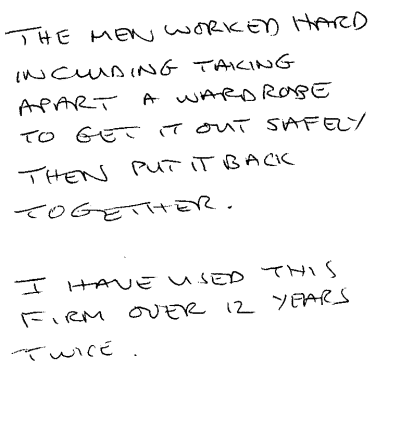 THE MEN WORKED HARD
INCLUDING TAKING
APART A WARDROBE
TO GET IT OUT SAFELY
THEN PUT IT BACK
TOGETHER.
I HAVE USED THIS
FIRM OVER 12 YEARS
TWICE.